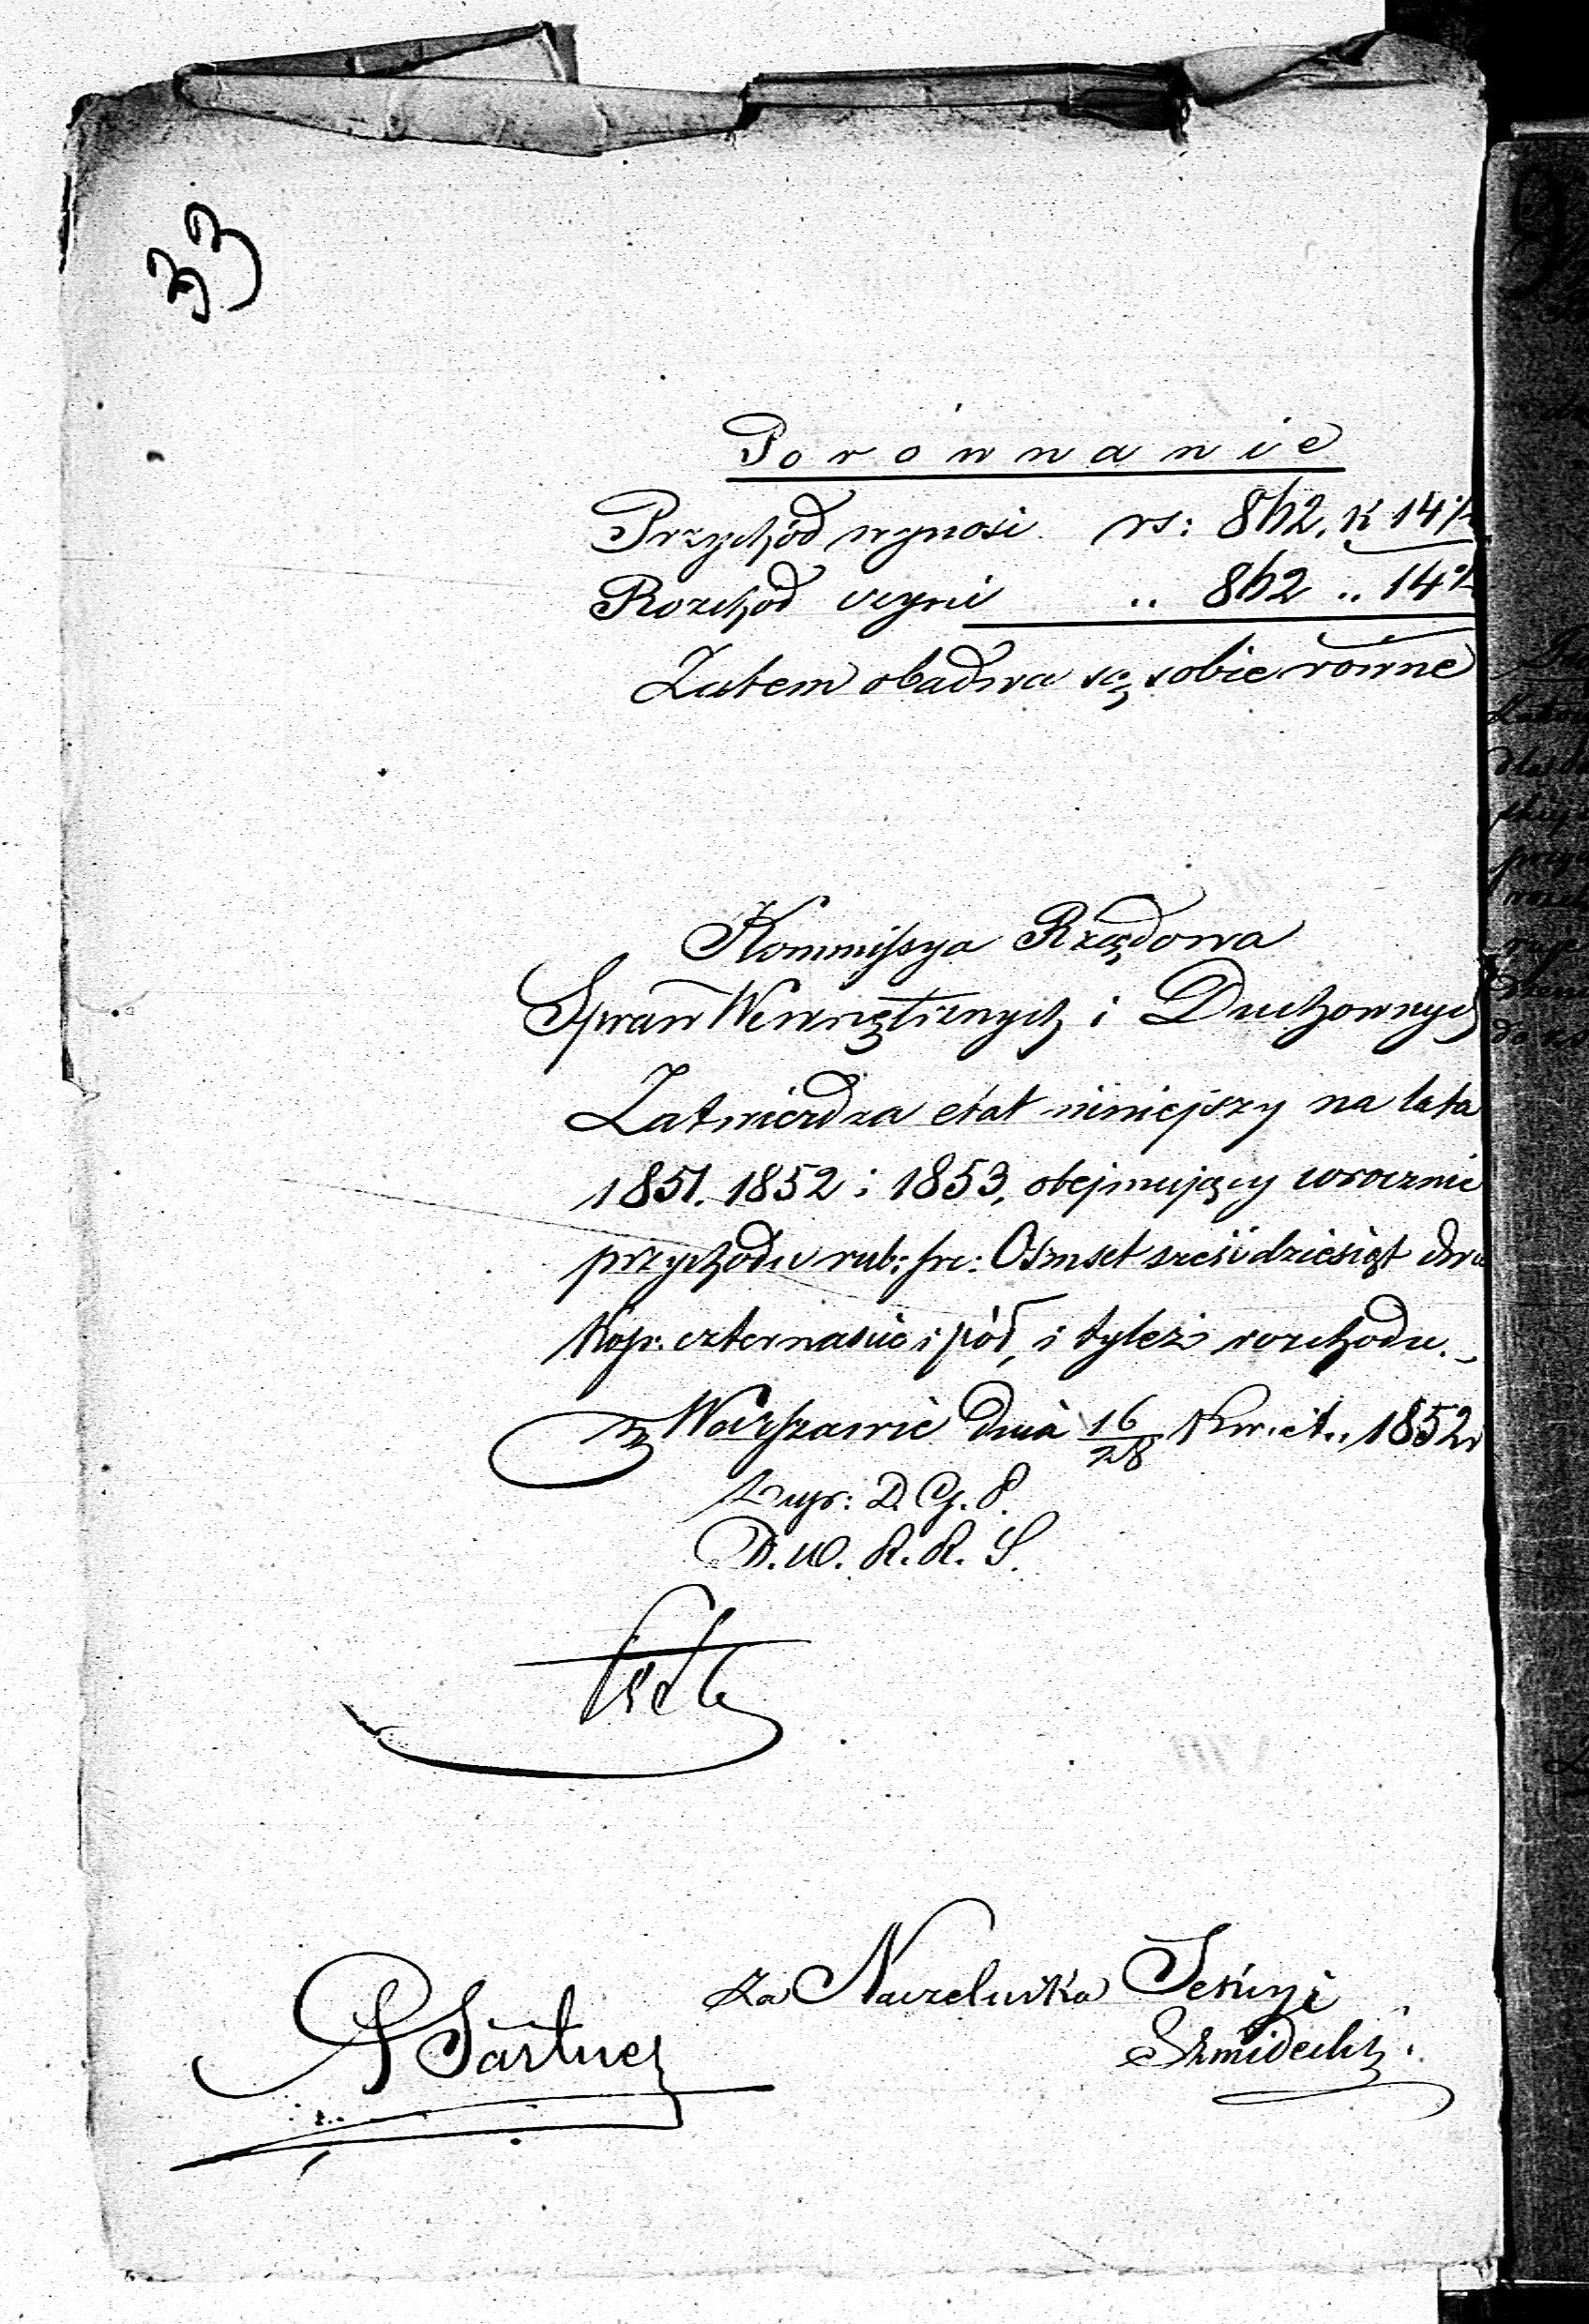 33
Porównanie
Przychód wynosi rs: 862. k 14½
Rozchód czyni .. 862 .. 14½
Zatem obadwa są sobie równe
Kommissya Rządowa
Spraw Wewnętrznych i Duchownych
Zatwierdza etat niniejszy na lata
1851. 1852 i 1853, obejmujący wrocznie
przychodu rub: sre: Ośmset sześćdziesiąt dwa
Kop: czternaście i pół, i tyleż rozchodu.
w Warszawie dnia 16/28 Kwiet.. 1852 r
D. G. P.
D. W. R. R. S.
za Naczelnika Sekcyi